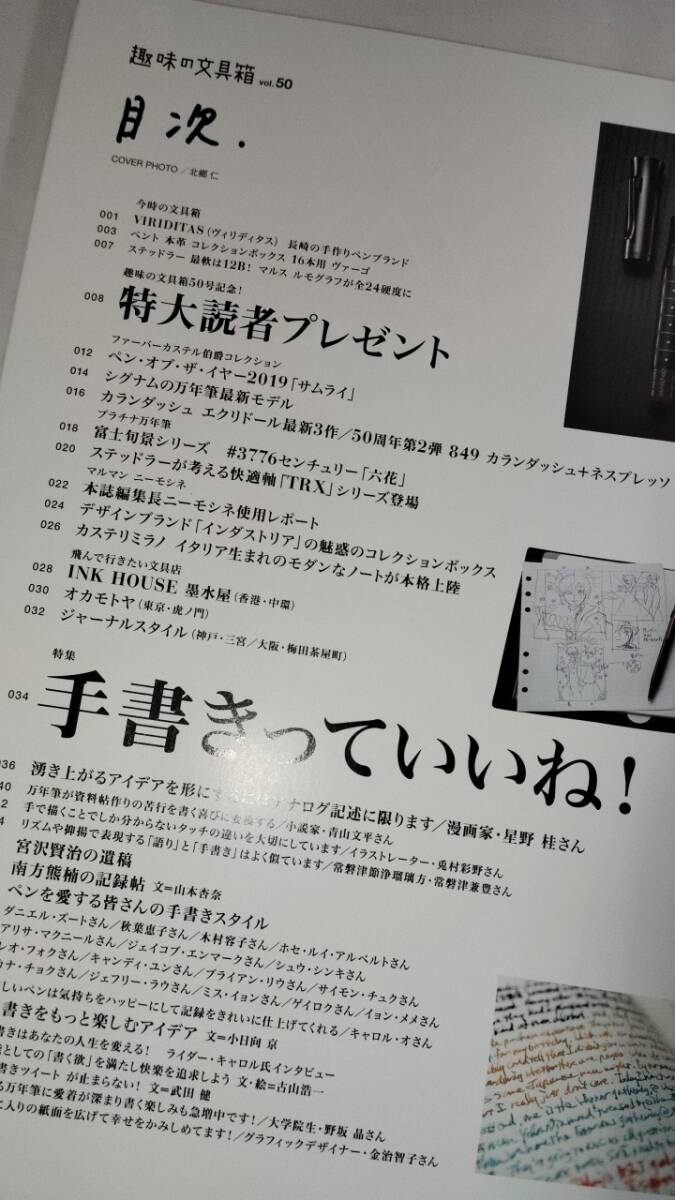 趣味の文具箱 vol.50
目次.
COVER PHOTO／北郷 仁
今時の文具箱
001 VIRIDITAS（ヴィリディタス） 長崎の手作りペンブランド
003 ペント 本革 コレクションボックス 16本用 ヴァーゴ
007 ステッドラー 最軟は12B！ マルス ルモグラフが全24硬度に
趣味の文具箱50号記念！
008 特大読者プレゼント
ファーバーカステル伯爵コレクション
012 ペン・オブ・ザ・イヤー2019「サムライ」
014 シグナムの万年筆最新モデル
016 カランダッシュ エクリドール最新3作／50周年第2弾 849 カランダッシュ+ネスプレッソ
プラチナ万年筆
018 富士旬景シリーズ #3776センチュリー「六花」
020 ステッドラーが考える快適軸「TRX」シリーズ登場
マルマン ニーモシネ
022 本誌編集長ニーモシネ使用レポート
024 デザインブランド「インダストリア」の魅惑のコレクションボックス
026 カステリミラノ イタリア生まれのモダンなノートが本格上陸
飛んで行きたい文具店
028 INK HOUSE 墨水屋（香港・中環）
030 オカモトヤ（東京・虎ノ門）
032 ジャーナルスタイル（神戸・三宮／大阪・梅田茶屋町）
特集
034 手書きっていいね！
036 湧き上がるアイデアを形にするにはアナログ記述に限ります／漫画家・星野 桂さん
40 万年筆が資料帖作りの苦行を書く喜びに変換する／小説家・青山文平さん
2 手で描くことでしか分からないタッチの違いを大切にしています／イラストレーター・兎村彩野さん
4 リズムや抑揚で表現する「語り」と「手書き」はよく似ています／常磐津節浄瑠璃方・常磐津兼豊さん
宮沢賢治の遺稿
南方熊楠の記録帖 文=山本杏奈
ペンを愛する皆さんの手書きスタイル
ダニエル・ズートさん／秋葉恵子さん／木村容子さん／ホセ・ルイ・アルベルトさん
アリサ・マクニールさん／ジェイコブ・エンマークさん／シュウ・シンキさん
レオ・フォクさん／キャンディ・ユンさん／ブライアン・リウさん／サイモン・チュクさん
カナ・チョクさん／ジェフリー・ラウさん／ミス・イョンさん／ゲイロクさん／イョン・メメさん
しいペンは気持ちをハッピーにして記録をきれいに仕上げてくれる／キャロル・オさん
書きをもっと楽しむアイデア 文=小日向 京
書きはあなたの人生を変える！ ライダー・キャロル氏インタビュー
としての「書く欲」を満たし快楽を追求しよう 文・絵=古山浩一
書きツイート が止まらない！ 文=武田 健
る万年筆に愛着が深まり書く楽しみも急増中です！／大学院生・野坂 晶さん
に入りの紙面を広げて幸せをかみしめてます！／グラフィックデザイナー・金治智子さん